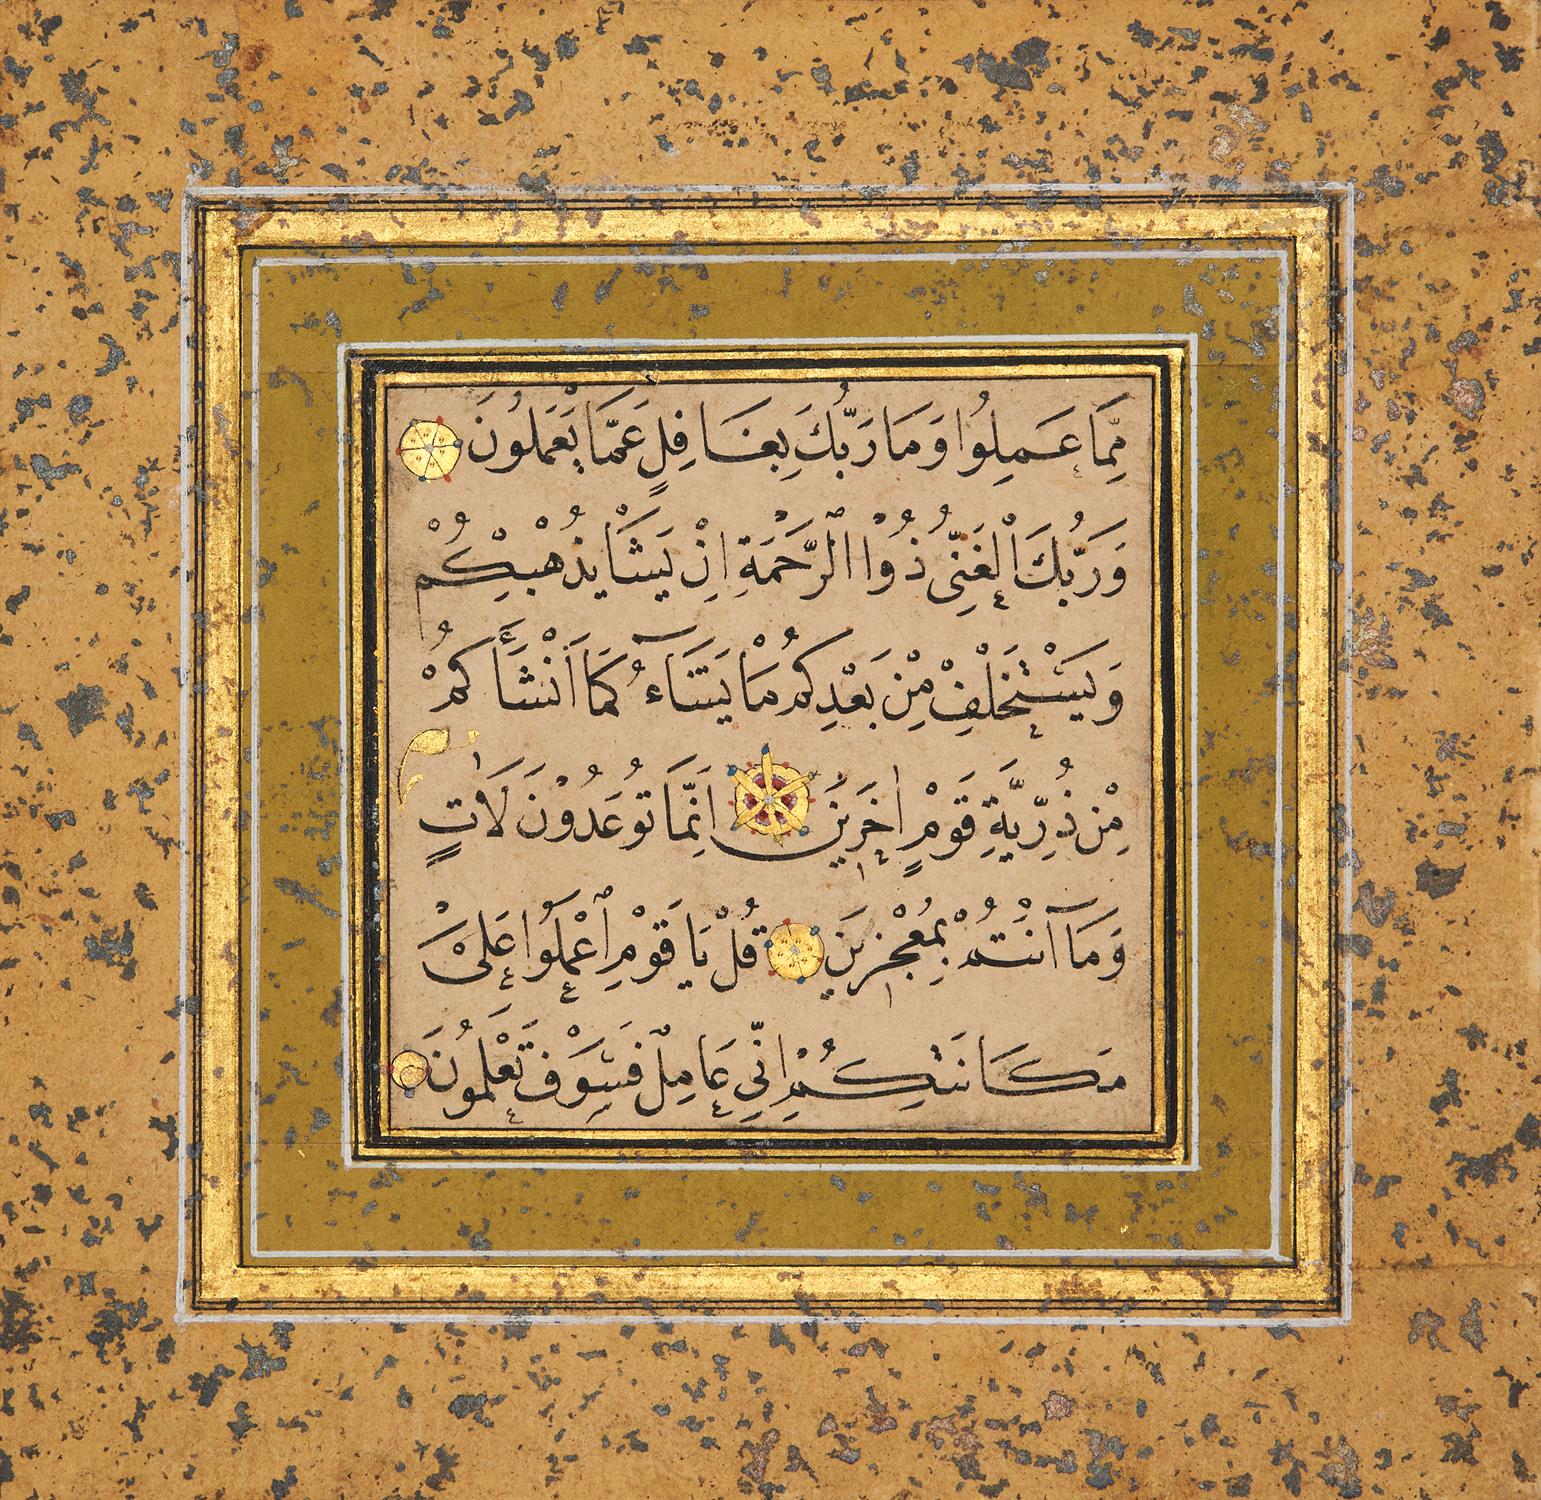 مِمَّا عَمِلُوا وَمَا رَبُّكَ بِغَافِلٍ عَمَّا يَعْمَلُونَ
وَرَبُّكَ الْغَنِيُّ ذُوا الرَّحْمَةِ اِنْ يَشَأْ يُذْهِبْكُمْ
وَيَسْتَخْلِفْ مِنْ بَعْدِكُمْ مَا يَشَآءُ كَمَا اَنْشَأَكُمْ
مِنْ ذُرِّيَّةِ قَوْمٍ اٰخَرِينَ اِنَّمَا تُوعَدُونَ لَاٰتٍ
وَمَآ اَنْتُمْ بِمُعْجِزِينَ قُلْ يَا قَوْمِ اعْمَلُوا عَلٰى
مَكَانَتِكُمْ اِنِّي عَامِلٌ فَسَوْفَ تَعْلَمُونَ